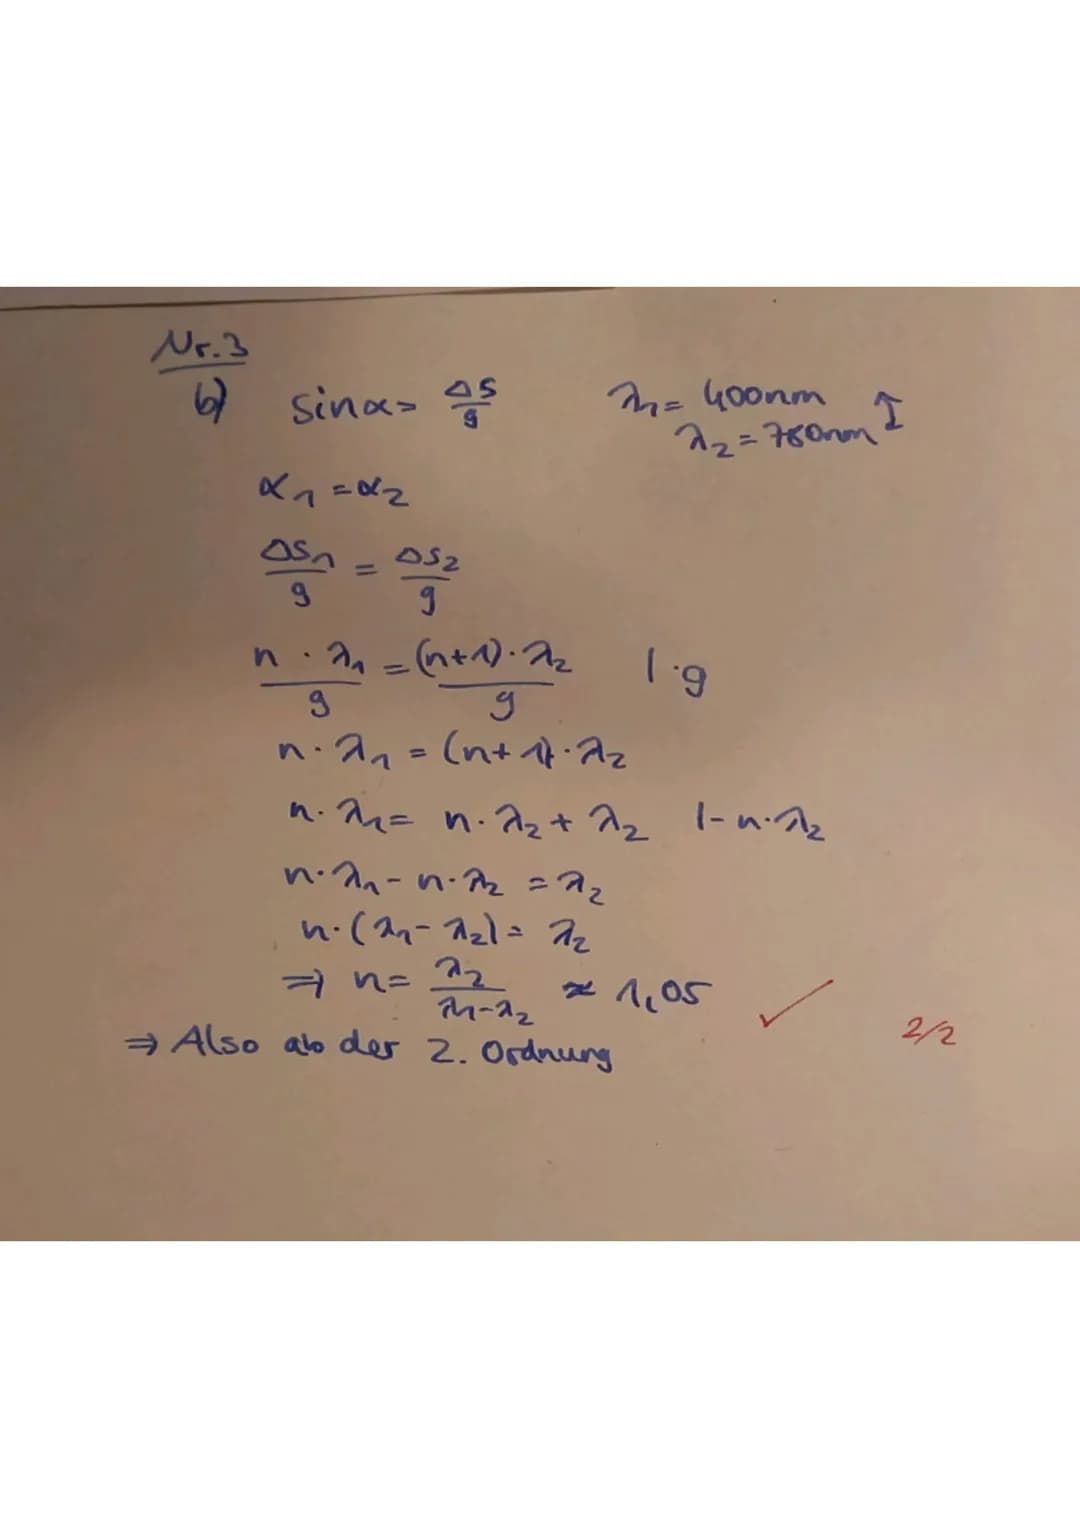 Nr.3
b) sinα = Δs/g λ1 = 400nm
λ2 = 780nm ↕
α1 = α2
Δs1/g = Δs2/g
n · λ1/g = (n+1) · λ2/g | ·g
n · λ1 = (n+1) · λ2
n · λ1 = n · λ2 + λ2 | - n · λ2
n · λ1 - n · λ2 = λ2
n · (λ1 - λ2) = λ2
⇒ n = λ2/λ1-λ2 ≈ 1,05 ✓
2/2
⇒ Also ab der 2. Ordnung